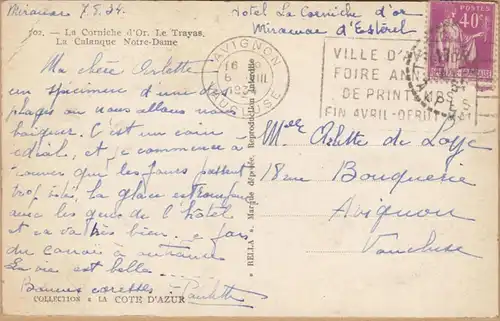 Miramar 7.8.34.
Hotel La Corniche d'or
Miramar d'Esterel
702. — La Corniche d'Or. Le Trayas.
La Calanque Notre-Dame
Ma chère Arlette
un spécimen d'une des
plages où nous allons nous
baigner. C'est un coin
idéal, et je commence à
trouver que les jours passent
trop vite. La glace est rompue
avec les gens de l'hôtel
et ça va très bien. Je fais
du canoë à outrance
La vie est belle
Bonnes caresses Paulette
COLLECTION LA COTE D'AZUR
"BELLA". Marque déposée. Reproduction Interdite
AVIGNON
16
8 VIII
VAUCLUSE
VILLE D'
FOIRE ANN
DE PRINTEMPS
FIN AVRIL-DEBUT MAI
40c
POSTES
Melle Arlette de Loye
18 rue Bouquerie
Avignon
Vaucluse